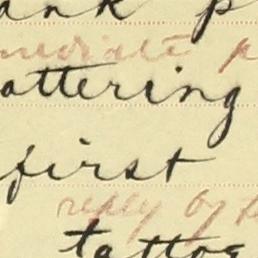 ank p
mediate p
attering
first
reply by
tattoo